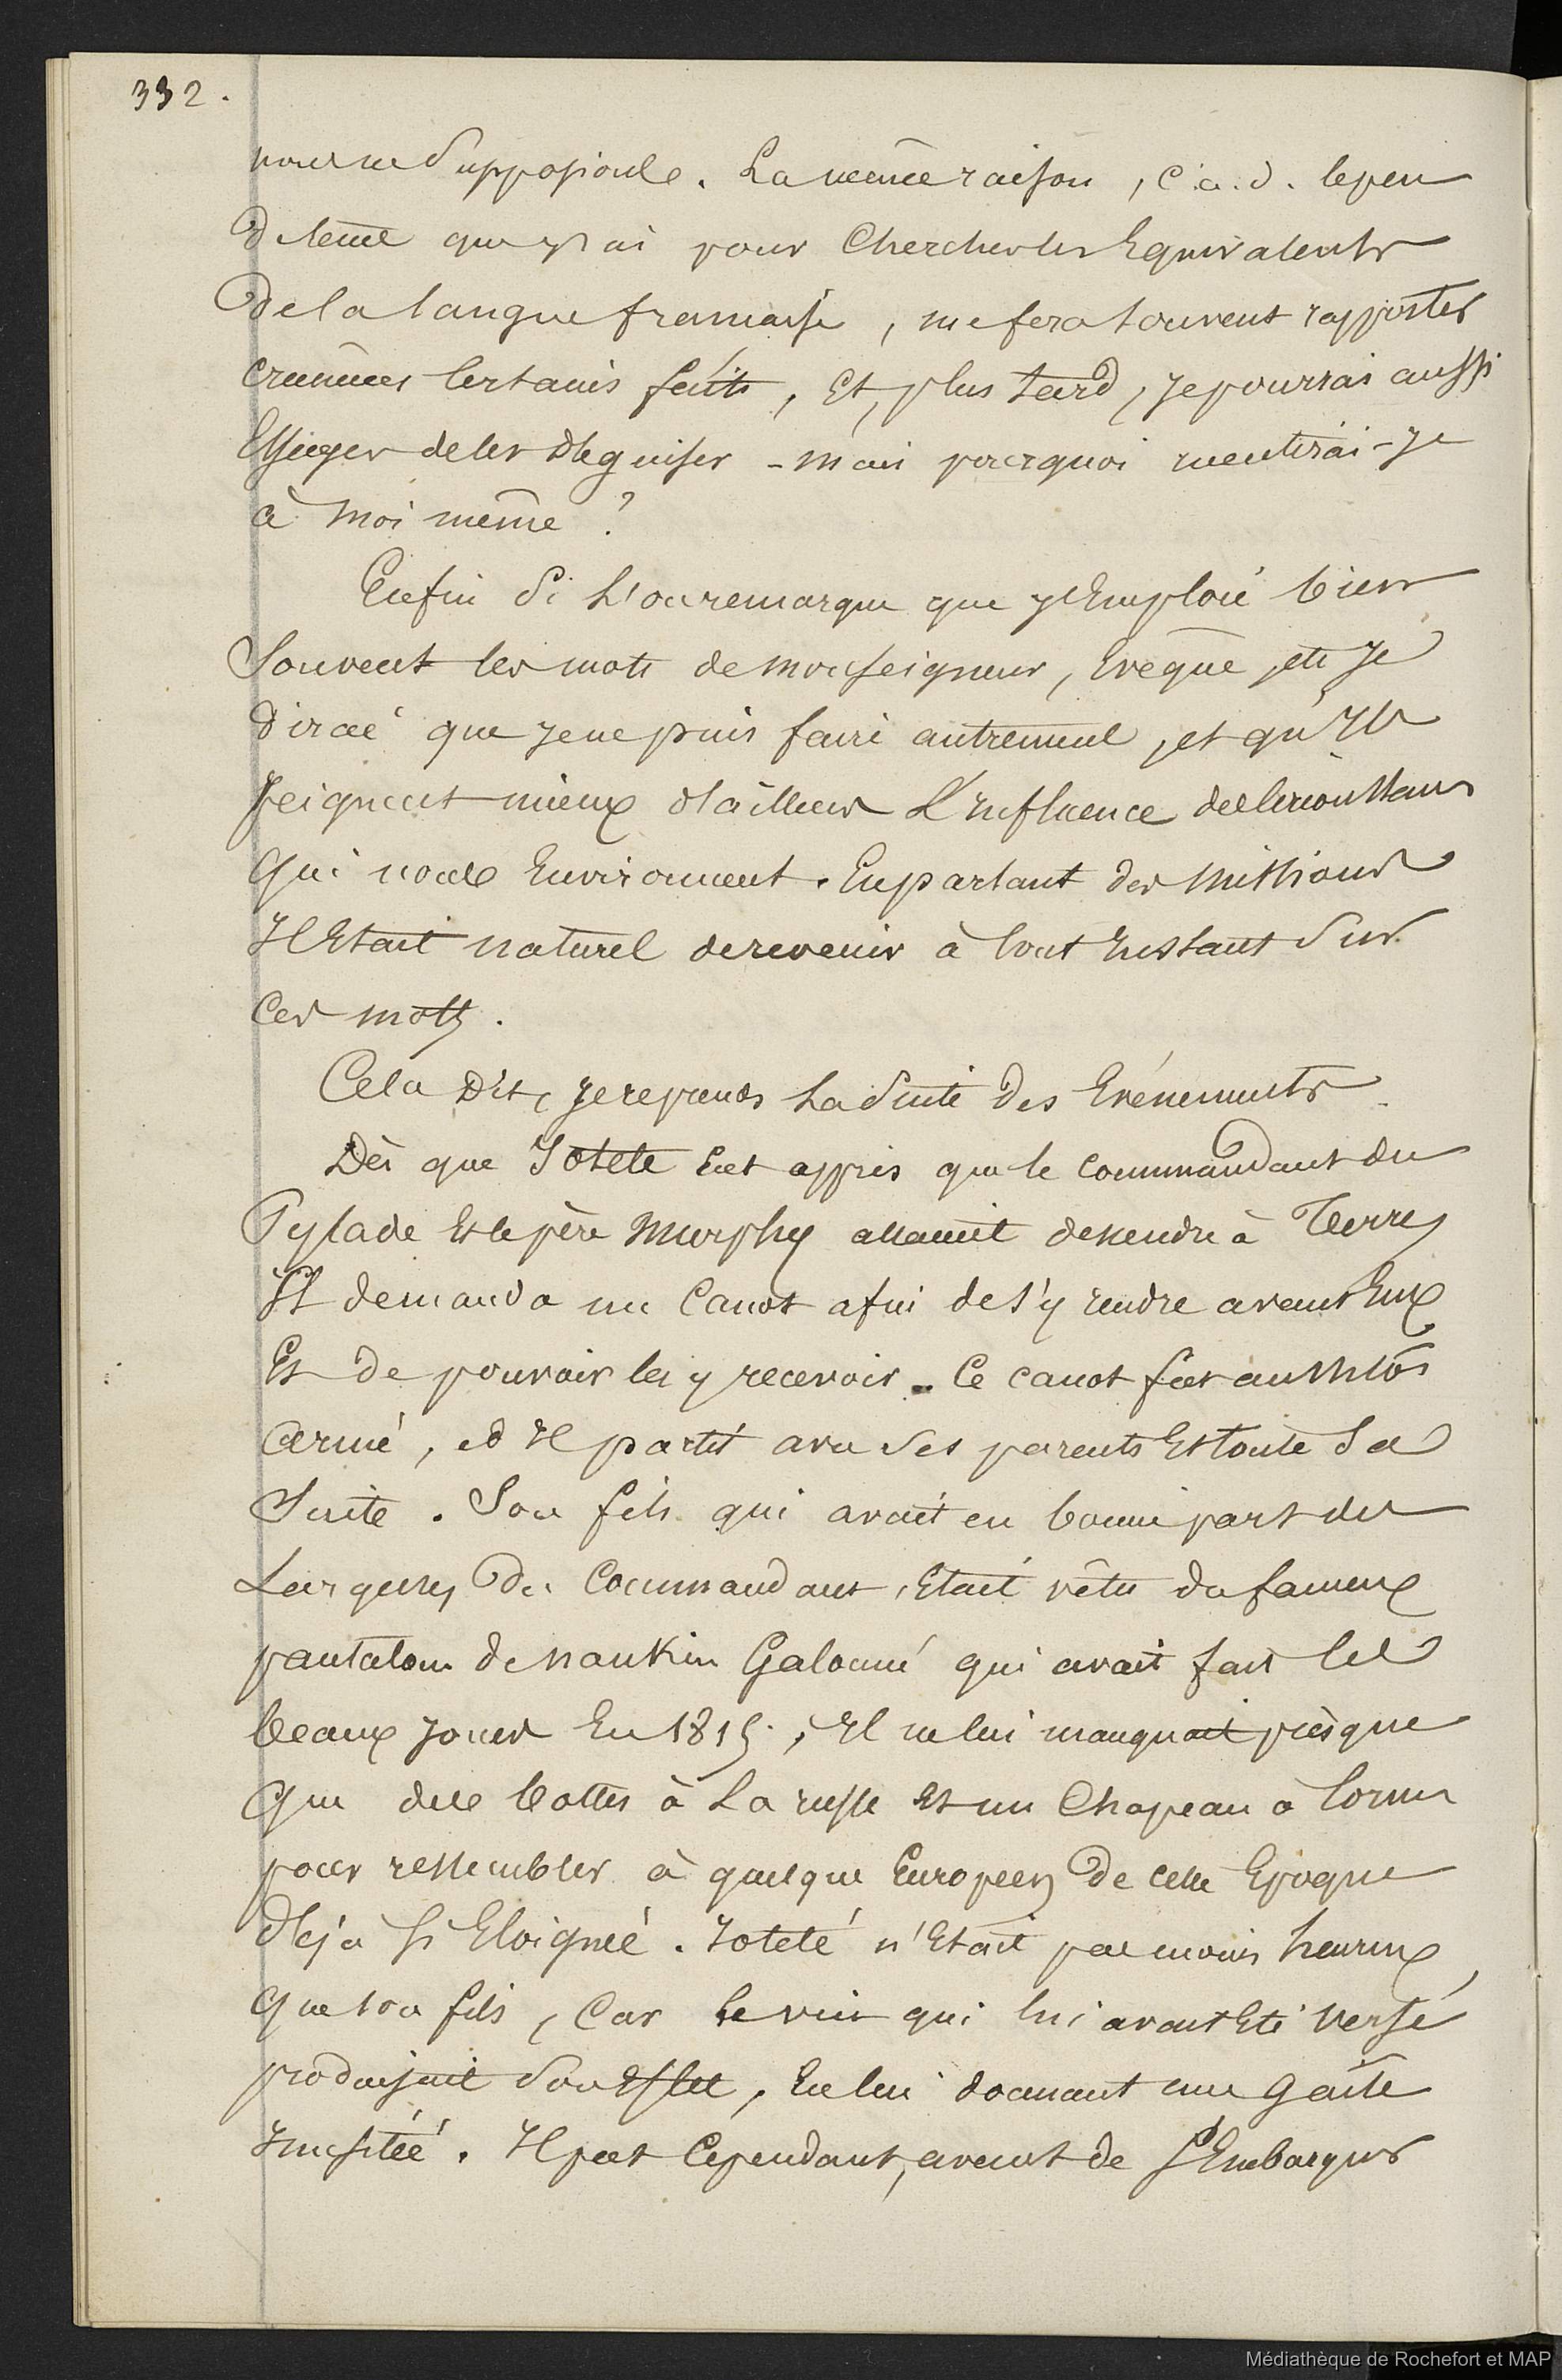 332.
nous ne supposions. La même raison, c.a.d. le peu
de tems que j'ai pour chercher les Equivalents
de la langue française, me fera souvent rapporter
crument certains faits, Et, plus tard, je pourrai aussi
Essayer de les déguiser - mais pourquoi mentirai-je
à moi même ?
Enfin si l'on remarque que j'Emploie bien
Souvent les mots de monseigneur, Evêque, etc je
dirai que je ne puis faire autrement, et qu'Ils
peignent mieux d'ailleurs L'influence des circonstances
Qui nous Environnent. En parlant des missions
Il Etait naturel de revenir à tout Instant Sur
Ces mots.
Cela Dit, je reprends La Suite des Evénements.
Dès que Iotété Eut appris que le commandant du
Pylade Et le père Murphy allaient descendre à Terre,
Il demanda un Canot afin de s'y rendre avant Eux
Et de pouvoir les y recevoir. Ce canot fut aussitôt
armé, et Il partit avec Ses parents Et toute Sa
Suite. Son fils qui avait eu bonne part des
Largesses du Commandant, Etait vêtu du fameux
pantalon de nankin Galonné qui avait fait les
beaux jours En 1815, Il ne lui manquait presque
Que des bottes à La russe Et un Chapeau à cornes
pour ressembler à quelque Européen de cette Epoque
déjà si Eloignée. Iotété n'Etait pas moins heureux
Que son fils, Car le vin qui lui avait Eté versé
produisait Son Effet, En lui donnant une gaité
Inusitée. Il put Cependant, avant de s'Embarquer
Médiathèque de Rochefort et MAP